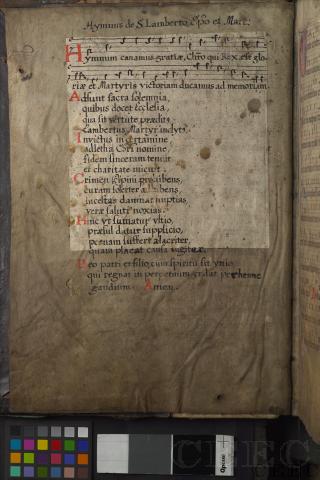 Hymnus de S. Lamberto Epo et Mart.
Hymnum canamus gratiæ, Chro qui Rex est glo
riæ et Martyris victoriam ducamus ad memoriam.
Adsunt sacra solemnia,
quibus docet Ecclesia,
qua sit virtute præditus
Lambertus Martyr inclytus.
Invictus in certamine
adletha Chri nomine,
fidem sinceram tenuit
et charitate micuit.
Crimen
curam solerter
incestas damnat nuptias
veræ saluti noxias.
Hinc
præsul datur supplicio,
pœnam suffert alacriter,
quam placat causa
Deo patri et filio, cum spiritu sit
qui regnat in perpetuum
gaudium. Amen.
CEEC